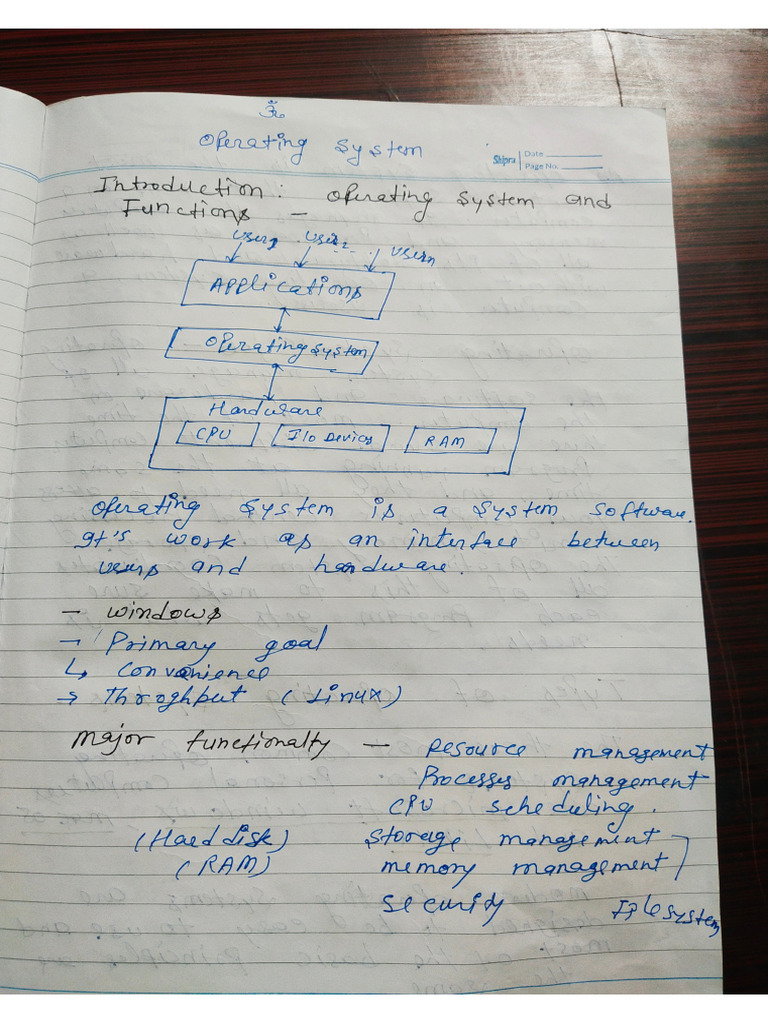 ॐ
Operating System
Shipra
Date
Page No.
Introduction: Operating System and
Functions -
User1 User2 ... Usern
Applications
Operating System
Hardware
CPU I/O Devices RAM
Operating System is a System Software.
It's work as an interface between
users and hardware.
- Windows
- Primary goal
↳ Convenience
→ Throghput (Linux)
Major functionalty - Resource management
Processes management
CPU scheduling.
(Hard disk) Storage management
(RAM) memory management
Security File system